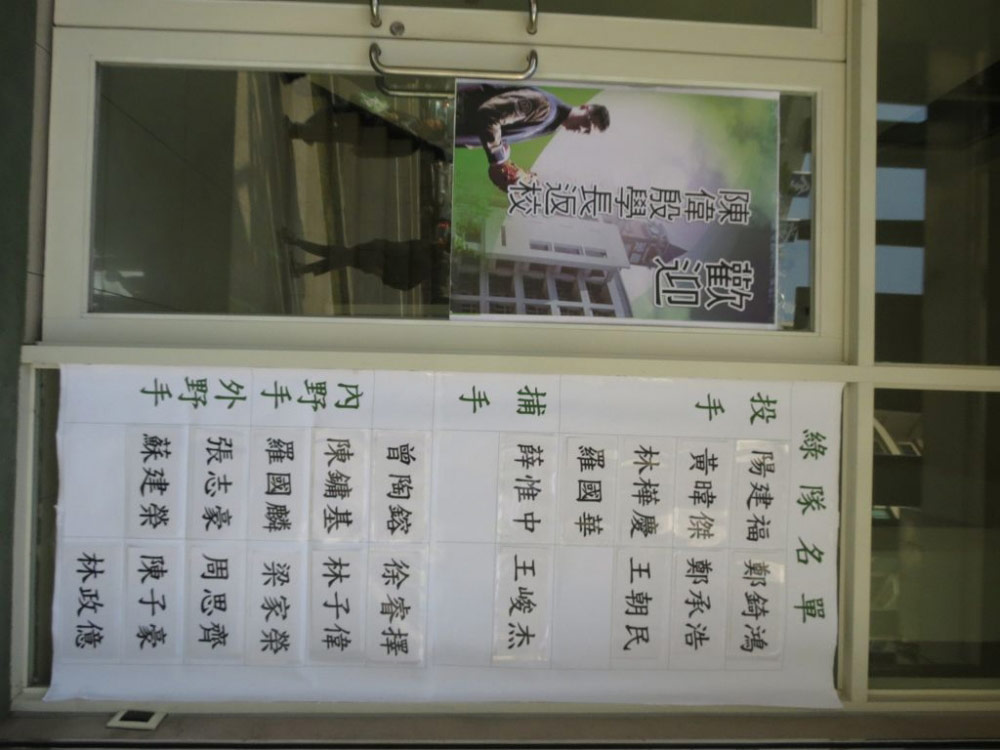 歡迎
陳偉殷學長返校
綠隊名單
投手
陽建福 鄭錡鴻
黃暐傑 鄭承浩
林樺慶 王朝民
羅國華
捕手
薛惟中 王峻杰
內野手
曾陶鎔 徐睿擇
陳鏞基 林子偉
羅國麟 梁家榮
外野手
張志豪 周思齊
蘇建榮 陳子豪
林政億